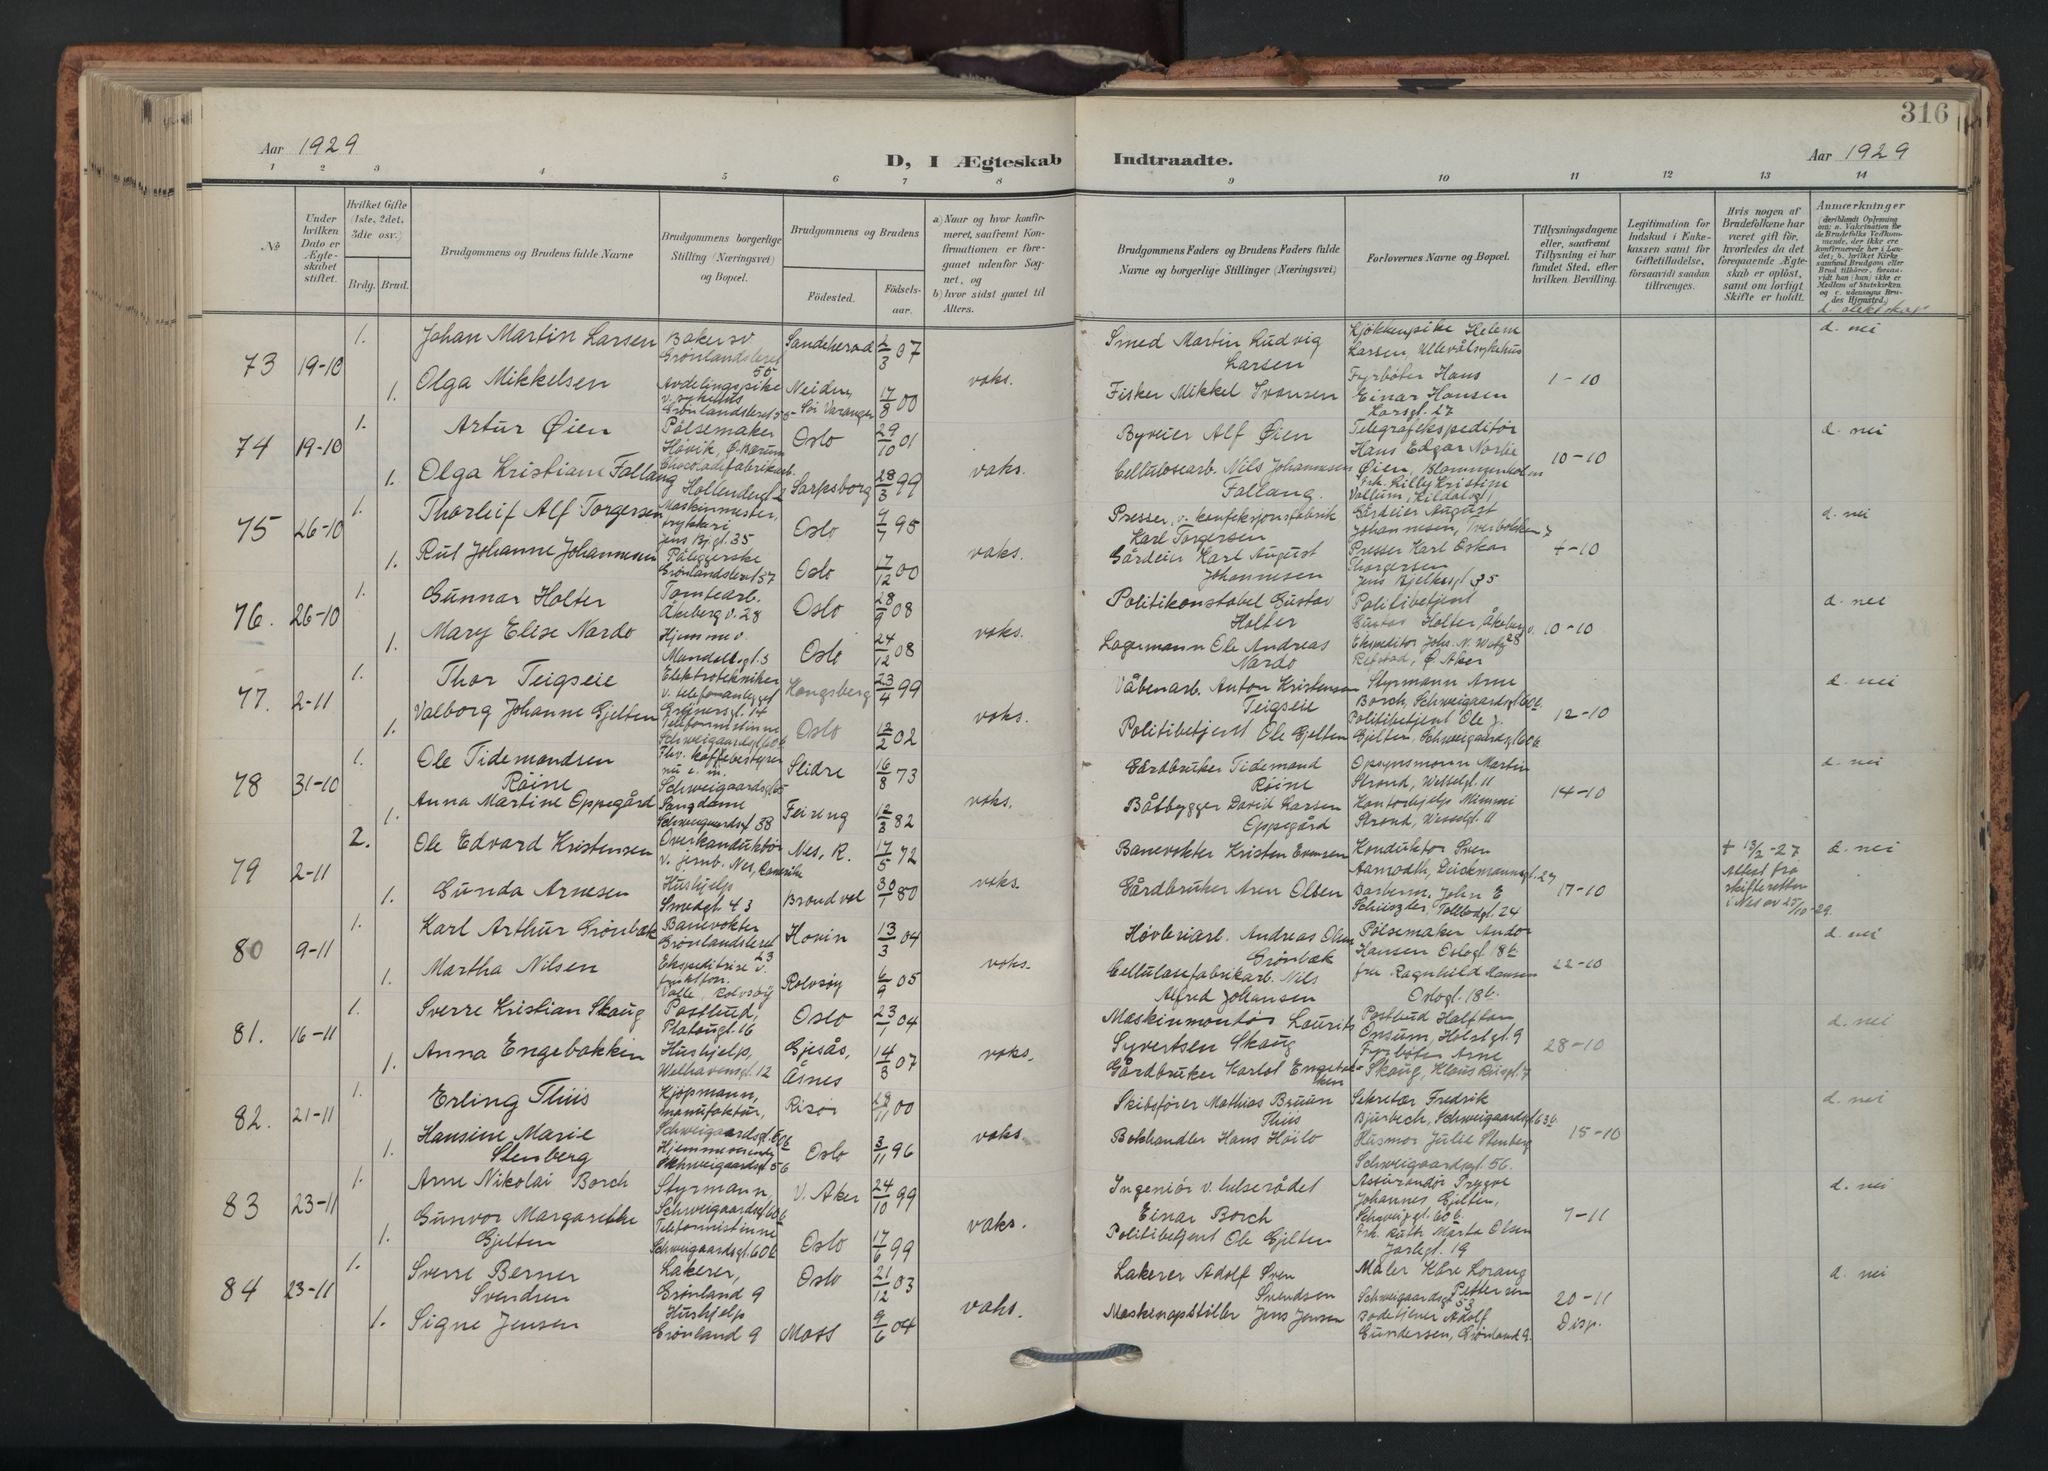 316
Aar 1929
D, I Ægteskab Indtraadte.
Aar 1929
1 2 3 4 5 6 7 8 9 10 11 12 13 14
No
Under hvilken Dato er Ægteskabet stiftet.
Hvilket Gifte (1ste, 2det, 3die osv.)
Brdg. Brud.
Brudgommens og Brudens fulde Navne
Brudgommens borgerlige Stilling (Næringsvei) og Bopæl.
Brudgommens og Brudens
Födested.
Födselsaar.
a) Naar og hvor konfirmeret, saafremt Konfirmationen er foregaaet udenfor Sognet, og
b) hvor sidst gaaet til Alters.
Brudgommens Faders og Brudens Faders fulde Navne og borgerlige Stillinger (Næringsvei)
Forlovernes Navne og Bopæl.
Tillysningsdagene eller, saafremt Tillysning ei har fundet Sted, efter hvilken Bevilling.
Legitimation for Indskud i Enkekassen samt for Giftetilladelse, forsaavidt saadan tiltrænges.
Hvis nogen af Brudefolkene har været gift för, hvorledes da det foregaaende Ægteskab er oplöst, samt om lovligt Skifte er holdt.
Anmærkninger
73 19-10
1. Johan Martin Larsen
Baker
Grønlandsleret 55
Sandeherad 2/3 07
Smed Martin Ludvig Larsen
Kjøkkenpike Helene Larsen, Ullevål sykehus
d. nei
1. Olga Mikkelsen
Avdelingspike v. sykehus
Grønlandsleret 55
Neiden, Sør Varanger 17/8 00
vaks.
Fisker Mikkel Ivansen
Fyrbøter Hans Einar Hansen
1-10
74 19-10
1. Artur Øien
Pølsemaker
Høvik, Ø. Bærum
Oslo 29/10 01
Byveier Alf Øien
Telegrafekspeditør Hans Edgar Øien,
d. nei
1. Olga Kristiane Fallang
Chocoladefabrikarb.
Sarpsborg 28/3 99
vaks.
Cellulosearb. Nils Johannesen Fallang.
Frk. Lilly Kristine
10-10
75 26-10
1. Thorleif Alf Torgersen
Maskinmester,
Jens Bj.gt. 35
Oslo 9/7 95
Presser v. konfeksjonsfabrik Karl Torgersen
Gårdeier August Johannesen,
d. nei
1. Rut Johanne Johannesen
Påleggerske
Grønlandsleret 57
Oslo 17/12 00
vaks.
Gårdeier Karl August Johannesen
Presser Karl Oskar Thorgersen
Jens Bjelkesgt. 35
4-10
76. 26-10
1. Gunnar Holter
Tomtearb.
Åkeberg v. 28
Oslo 28/9 08
Politikonstabel Gustav Holter
Politibetjent Gustav Holter, Åkeberg v. 28
d. nei
1. Mary Elise Nardo
Hjemme v.
Mandalsgt. 3
Oslo 24/12 08
vaks.
Lagermann Ole Andreas Nardo
Ekspeditør Johs. N.
Refstad, Ø. Aker
10-10
77. 2-11
1. Thor Teigseie
Elektrotekniker v. telefonanlegget
Grünersgt. 14
Kongsberg 23/4 99
Våbenarb. Anton Kristensen Teigseie
Styrmann Arne Borch, Schweigaardsgt. 60b
d. nei
1. Valborg Johanne Gjelten
Telefonistinne
Schweigaardsgt. 60b
Oslo 12/2 02
vaks.
Politibetjent Ole Gjelten
Politibetjent Ole J. Gjelten, Schweigaardsgt. 60b
12-10
78 31-10
1. Ole Tidemandsen Røine
Schweigaardsgt.
Slidre 16/8 73
Gårdbruker Tidemand Røine
Opsynsmann Martin Strand, Wesselsgt. 11
d. nei
1. Anna Martine Oppegård
Sangdame
Schweigaardsgt. 38
Feiring 12/3 82
vaks.
Båtbygger David Larsen Oppegård
Kontorhjelp Mimmi Strand, Wesselgt. 11
14-10
79 2-11
2. Ole Edvard Kristensen
Overkonduktør v. jernb. Nes, Romerike
Nes, R. 17/5 72
Banevokter Kristen Evensen
Konduktør Sven Aamodth, Deichmannsgt. 27
+ 13/2-27.
Attest fra skifteretten i Nes av 25/10-29.
d. nei
1. Gunda Arnesen
Hushjelp
Smedgt. 43
Brandvel 30/1 80
vaks.
Gårdbruker Aren Olsen
Barberm. John E
Tollbodgt. 24
17-10
80 9-11
1. Karl Arthur Grönbæk
Banevokter
Grønlandsleret 23
Hovin 13/3 04
Høvleriarb. Andreas Olsen Grönbæk
Pølsemaker Andor Hansen Oslogt. 18b
d. nei
1. Martha Nilsen
Ekspeditrise v.
Valle, Rolvsøy
Rolvsøy 6/9 05
vaks.
Cellulosefabrikarb. Nils Alfred Johansen
fru Ragnhild Hansen
Oslogt. 18b.
22-10
81. 16-11
1. Sverre Kristian Skaug
Postbud,
Platousgt. 16
Oslo 23/1 04
Maskinmontör Laurits Syvertsen Skaug
Postbud Halfdan Onsum, Holstgt. 9
d. nei
1. Anna Engebakken
Hushjelp,
Welhavensgt. 12
Gjesås, Åsnes 14/3 07
vaks.
Gårdbruker Karl Engebakken
Fyrbøter Arne Skaug, Klaus Riisgt. 7
28-10
82. 21-11
1. Erling Thiis
Kjøpmann, manufaktur,
Schweigaardsgt. 60b
Risør 28/11 00
Skibsfører Mathias Bruun Thiis
Sekretær Fredrik Bjurbech, Schweigaardsgt. 63b
d. nei
1. Hansine Marie Stenberg
Hjemmeværende
Schweigaardsgt. 56
Oslo 3/11 96
vaks.
Bokhandler Hans Höilo
Husmor Julie Stenberg
Schweigaardsgt. 56.
15-10
83 23-11
1. Arne Nikolai Borch
Styrmann,
Schweigaardsgt. 60b
V. Aker 24/10 99
Ingeniør v. helserådet Einar Borch
Assurandør Trygve Johannes Gjelten,
Schweig.gt. 60b.
d. nei
1. Gunvor Margarethe Gjelten
Telefonistinne
Schweigaardsgt. 60b
Oslo 17/6 99
vaks.
Politibetjent Ole Gjelten
Frk. Ruth Marta Olsen
Jarlegt. 19
7-11
84 23-11
1. Sverre Berner Svendsen
Lakerer,
Grønland 9
Oslo 21/12 03
Lakerer Adolf Sven Svendsen
Maler Kåre Lorang Pettersen
Schweigaardsgt. 53
d. nei
1. Signe Jensen
Hushjelp
Grønland 9
Moss 9/6 04
vaks.
Maskinopstiller Jens Jensen
Bodebetjener Adolf Gundersen, Grønland 9.
20-11
Disp.